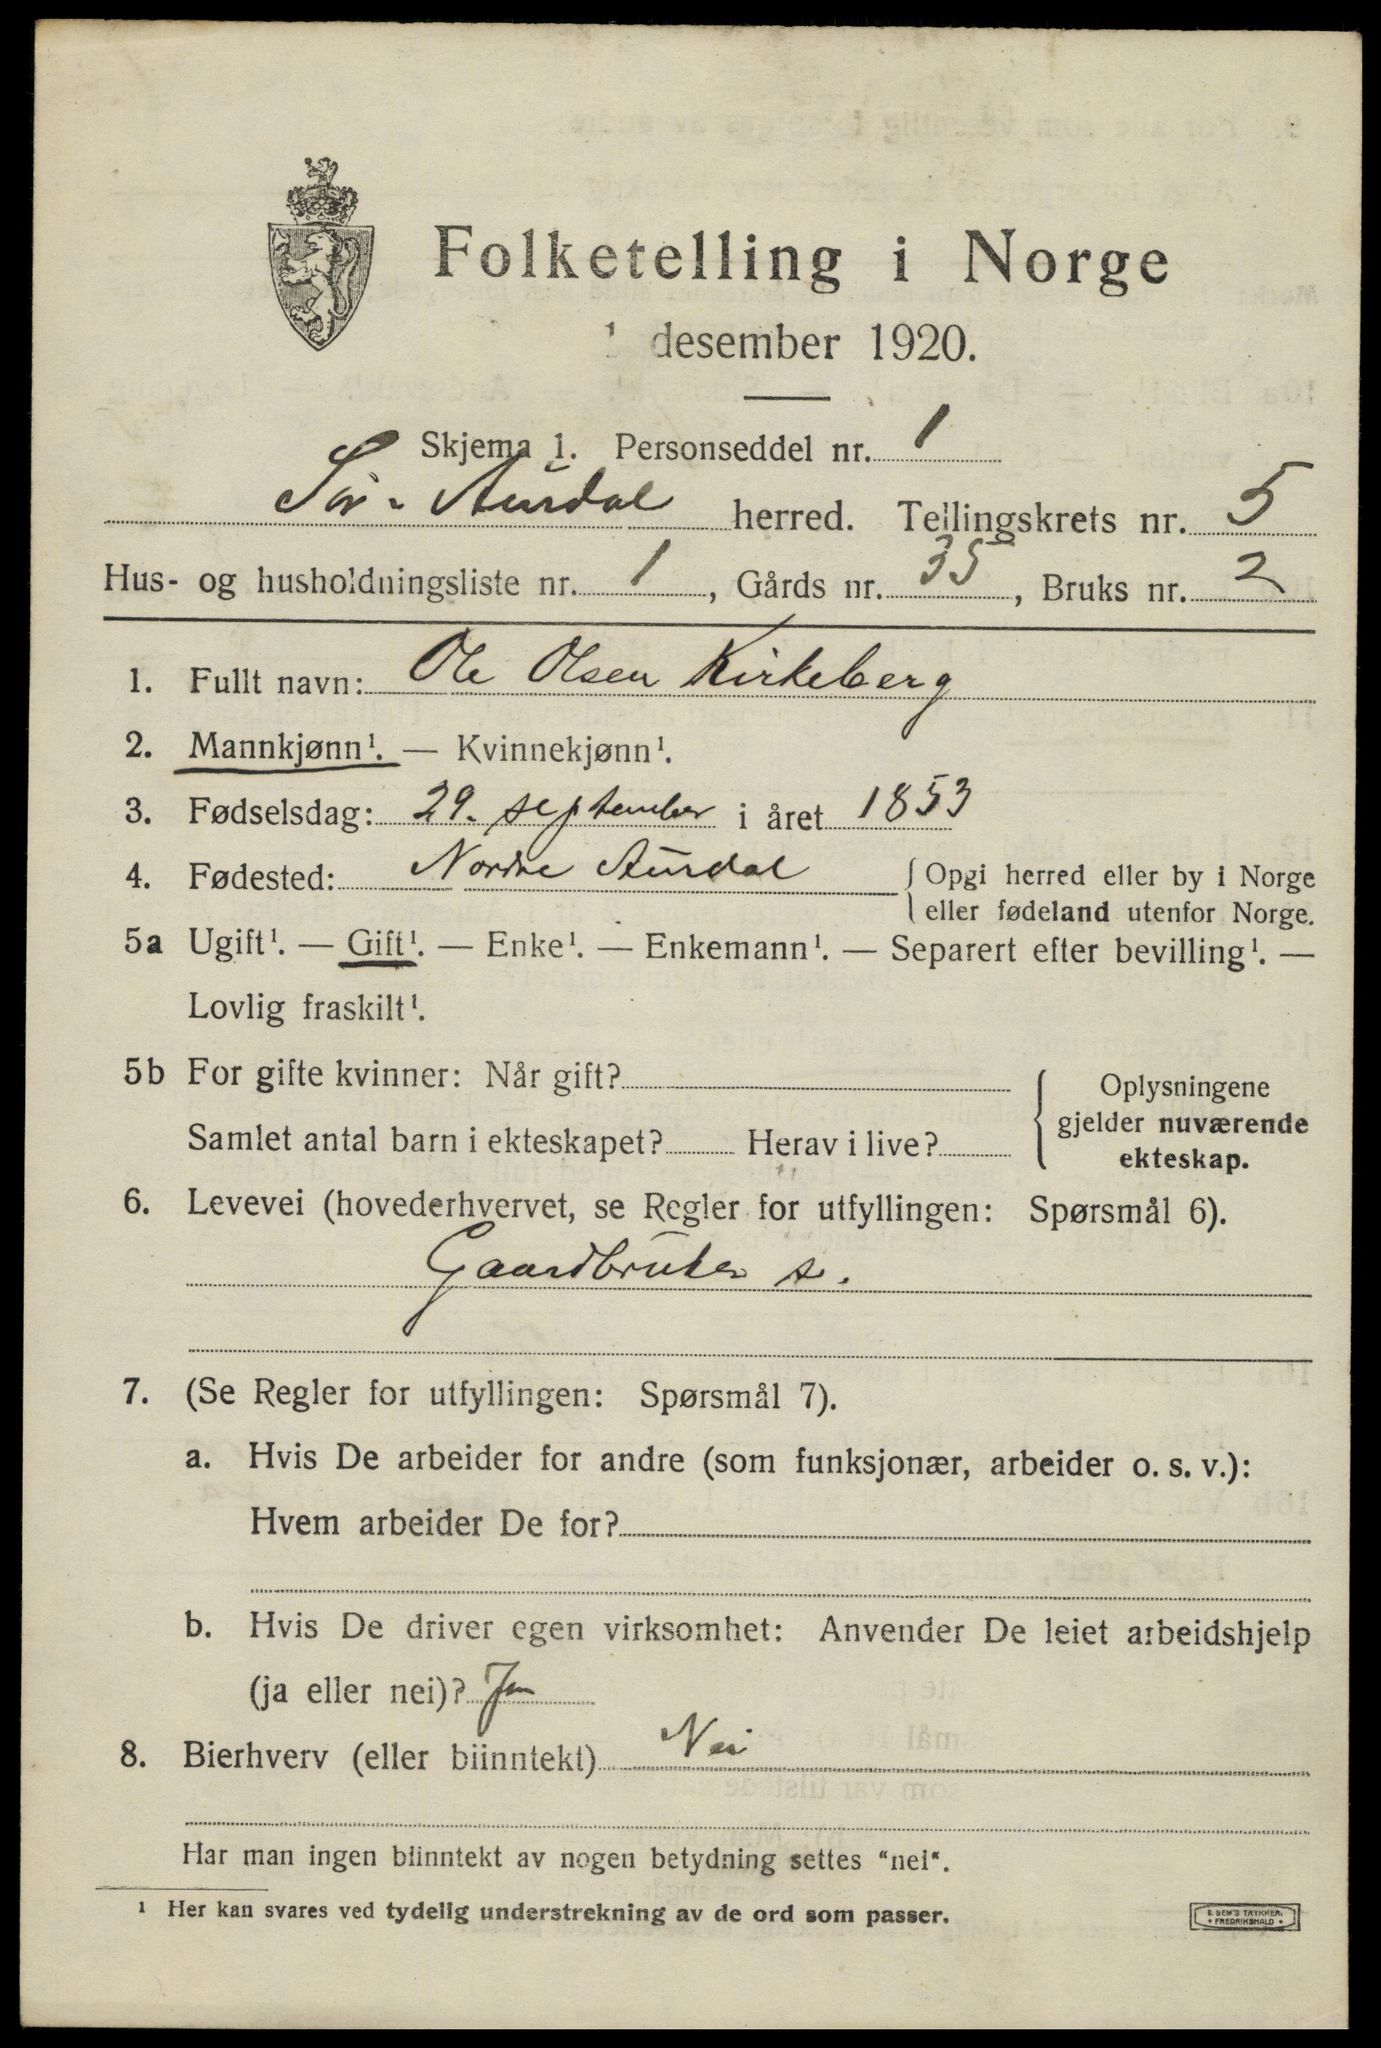 Folketelling i Norge
1 desember 1920.
Skjema 1. Personseddel nr. 1
Sør-Aurdal herred. Tellingskrets nr. 5
Hus- og husholdningsliste nr. 1, Gårds nr. 35, Bruks nr. 2
1. Fullt navn: Ole Olsen Kirkeberg
2. Mannkjønn¹. — Kvinnekjønn¹.
3. Fødselsdag: 29. september i året 1853
4. Fødested: Nordre Aurdal { Opgi herred eller by i Norge
eller fødeland utenfor Norge.
5a Ugift¹. — Gift¹. — Enke¹. — Enkemann¹. — Separert efter bevilling¹. —
Lovlig fraskilt¹.
5b For gifte kvinner: Når gift?
Samlet antal barn i ekteskapet? Herav i live?
{ Oplysningene
gjelder nuværende
ekteskap.
6. Levevei (hovederhvervet, se Regler for utfyllingen: Spørsmål 6).
Gaardbruker s.
7. (Se Regler for utfyllingen: Spørsmål 7).
a. Hvis De arbeider for andre (som funksjonær, arbeider o. s. v.):
Hvem arbeider De for?
b. Hvis De driver egen virksomhet: Anvender De leiet arbeidshjelp
(ja eller nei)? Ja
8. Bierhverv (eller biinntekt) Nei
Har man ingen biinntekt av nogen betydning settes "nei".
¹ Her kan svares ved tydelig understrekning av de ord som passer.
S. SEM'S TRYKKERI
• FREDRIKSHALD •